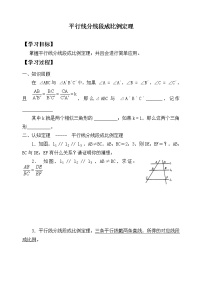 平行线分线段成比例定理
【学习目标】
掌握平行线分线段成比例定理，并且会进行简单应用。
【学习过程】
一、知识回顾
在△ABC与△A′B′C′中，如果∠A=∠A′，∠B=∠B′，∠C=∠C′，
且 AB/A′B′ = BC/B′C′ = CA/C′A′ = k，那么△ABC与△A′B′C′________，记作
________________
其中k就是两个相似三角形的________；如果k=1，那么这两个三角
形________。
二、认知定理 —— 平行线分线段成比例定理
1．如图，l₁//l₂//l₃，AB=BC，
2．如图，l₁//l₂//l₃，AB≠BC，求证：
AB/BC=DE/EF
3．平行线分线段成比例定理：三条平行线截两条直线，所得的对应线段
成比例。